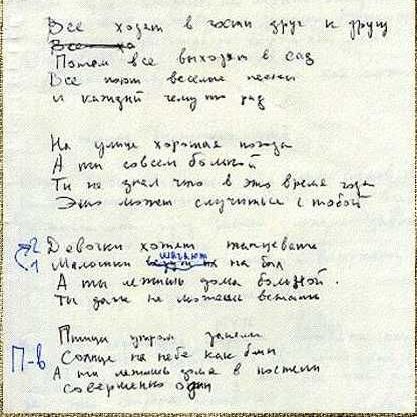 Все ходят в гости друг к другу
Все ха
Потом все выходят в сад
Все поют веселые песни
и каждый чему то рад
На улице хорошая погода
А ты совсем больной
Ты не знал что в это время года
Это может случиться с тобой
2 Девочки хотят танцевать
шагают
1 Мальчики ведут их на бал
А ты лежишь дома больной.
Ты даже не можешь встать
Птицы утром запели
П-в Солнце на небе как блин
А ты лежишь дома в постели
совершенно один